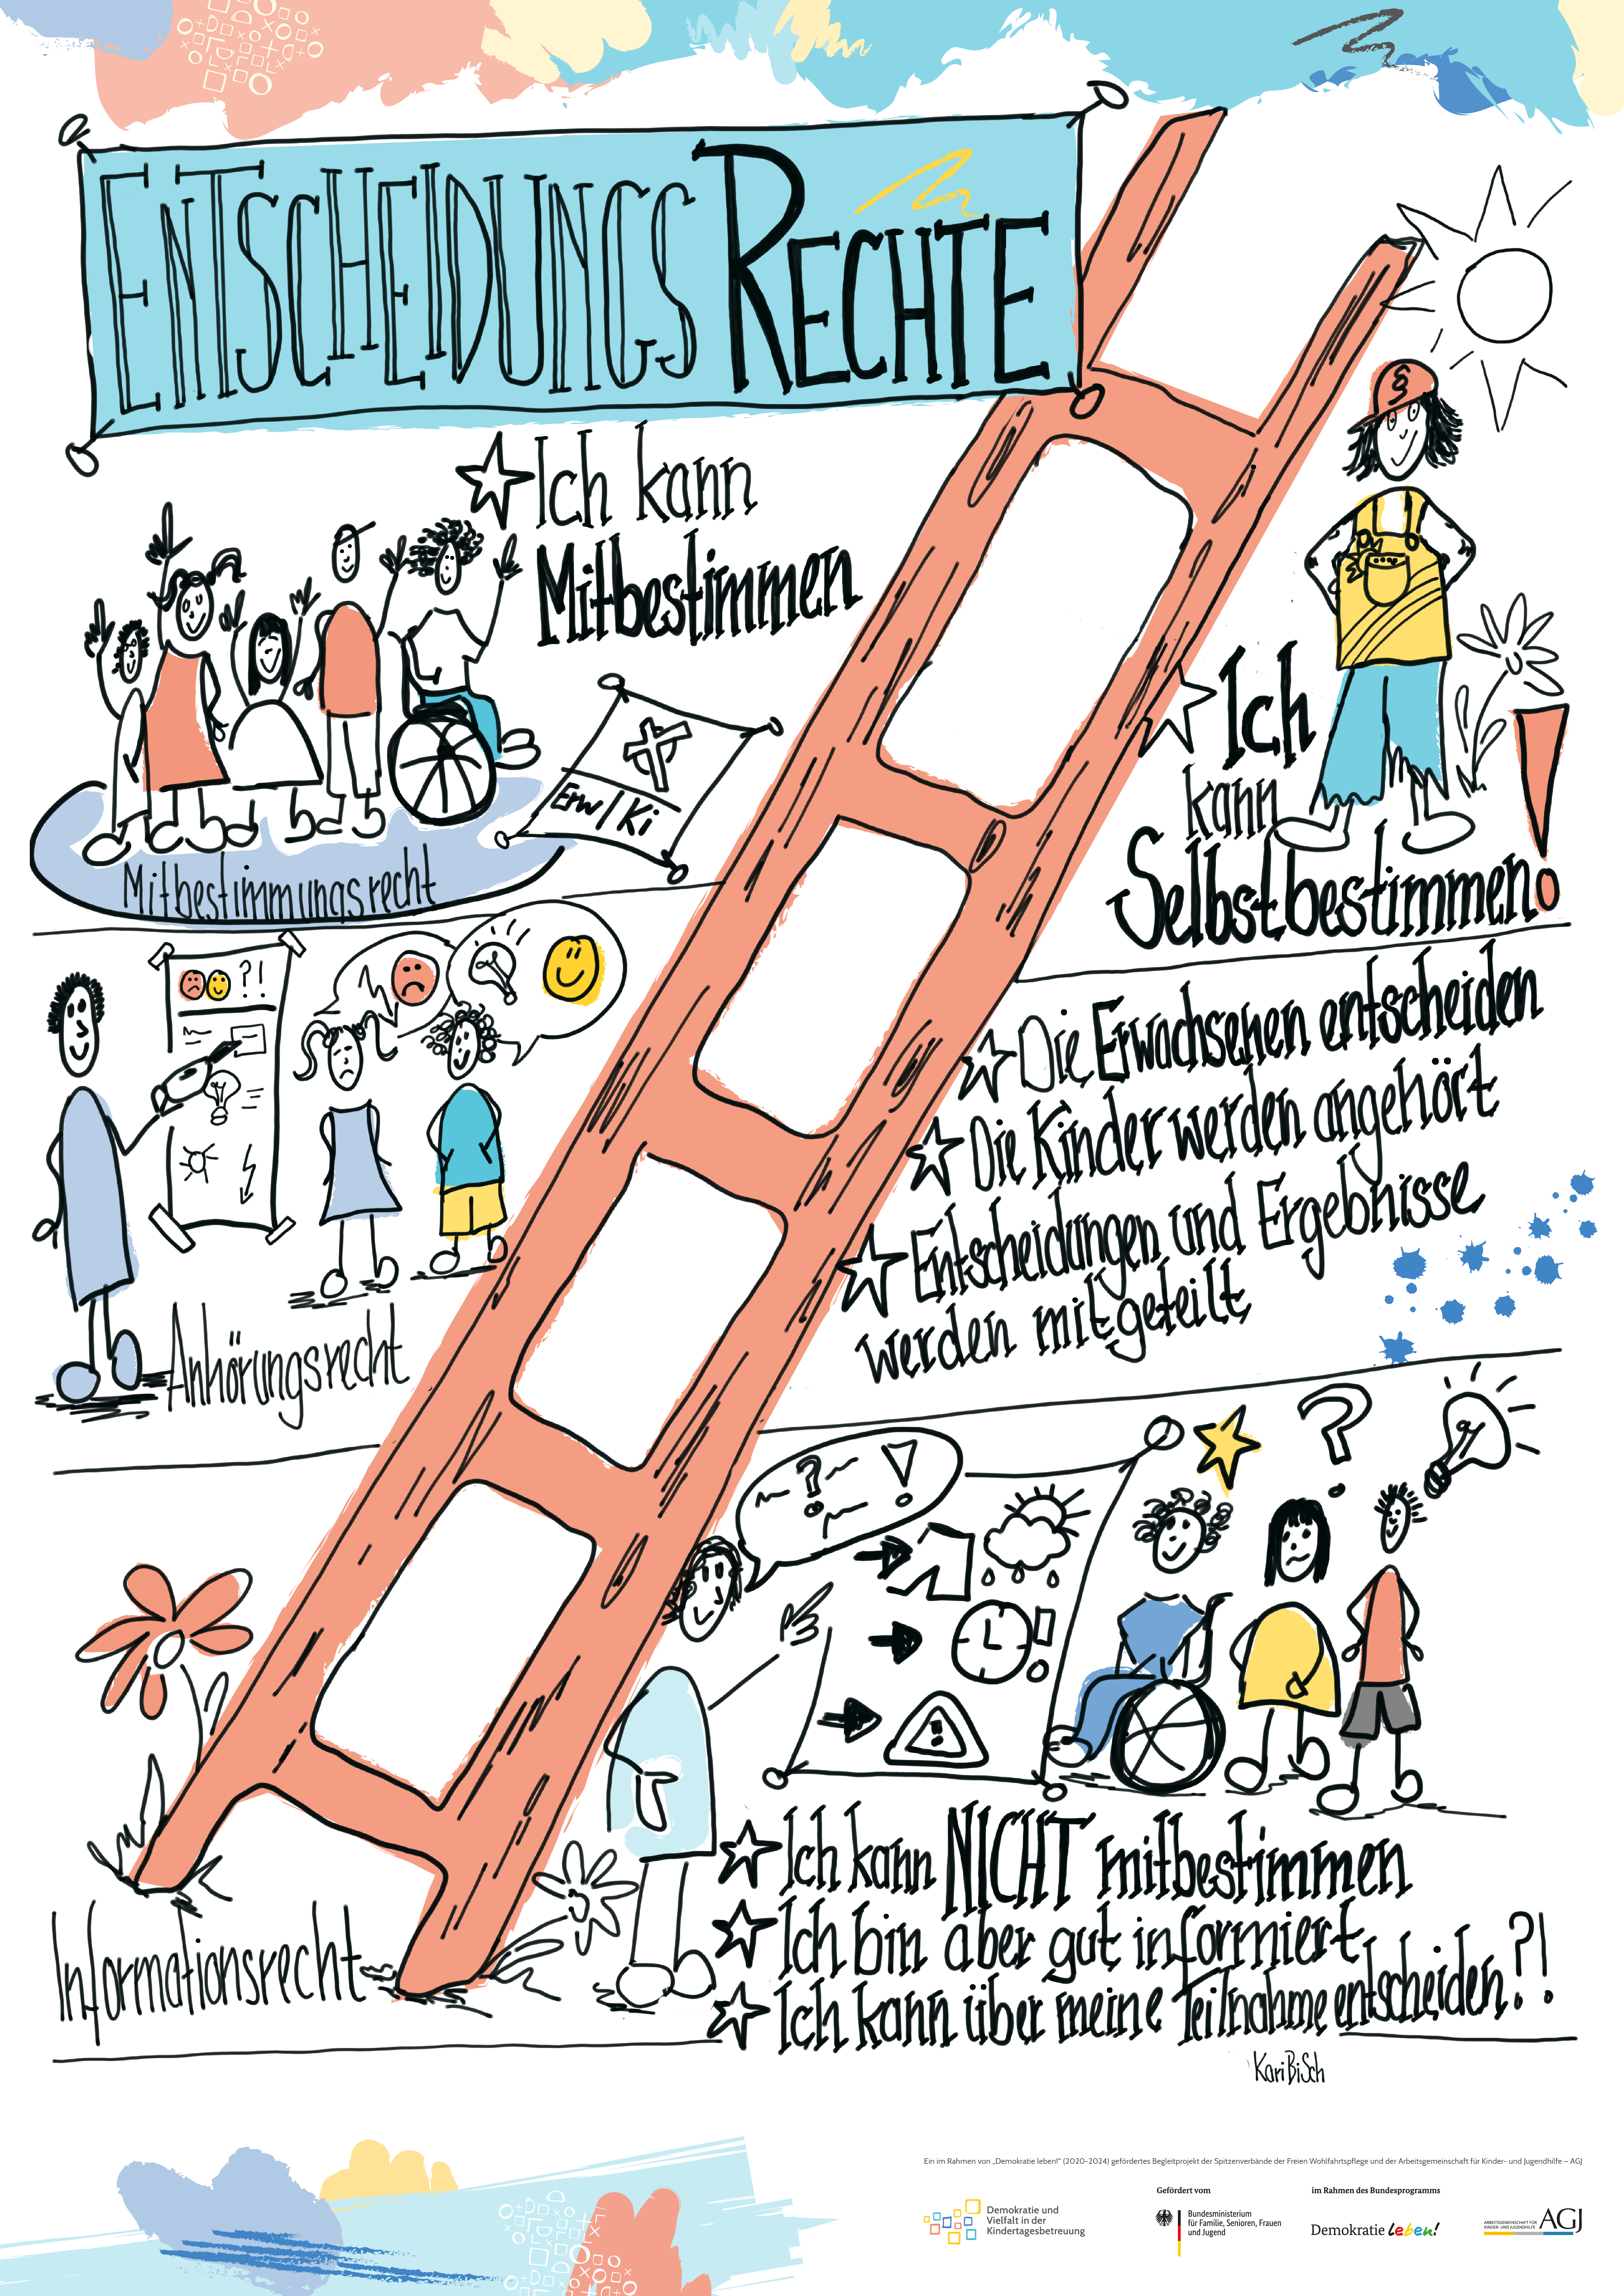 ENTSCHEIDUNGS RECHTE
§
☆ Ich kann
Mitbestimmen
Erw/Ki
Mitbestimmungsrecht
☆ Ich
kann
Selbstbestimmen!
?!
Anhörungsrecht
☆ Die Erwachsenen entscheiden
☆ Die Kinder werden angehört
☆ Entscheidungen und Ergebnisse
werden mitgeteilt
? !
?
!
!
Informationsrecht
☆ Ich kann NICHT mitbestimmen
☆ Ich bin aber gut informiert
☆ Ich kann über meine Teilnahme entscheiden?!
KariBiSch
Ein im Rahmen von „Demokratie leben!“ (2020-2024) gefördertes Begleitprojekt der Spitzenverbände der Freien Wohlfahrtspflege und der Arbeitsgemeinschaft für Kinder- und Jugendhilfe – AGJ
Demokratie und
Vielfalt in der
Kindertagesbetreuung
Gefördert vom
Bundesministerium
für Familie, Senioren, Frauen
und Jugend
im Rahmen des Bundesprogramms
Demokratie leben!
ARBEITSGEMEINSCHAFT FÜR
KINDER- UND JUGENDHILFE
AGJ